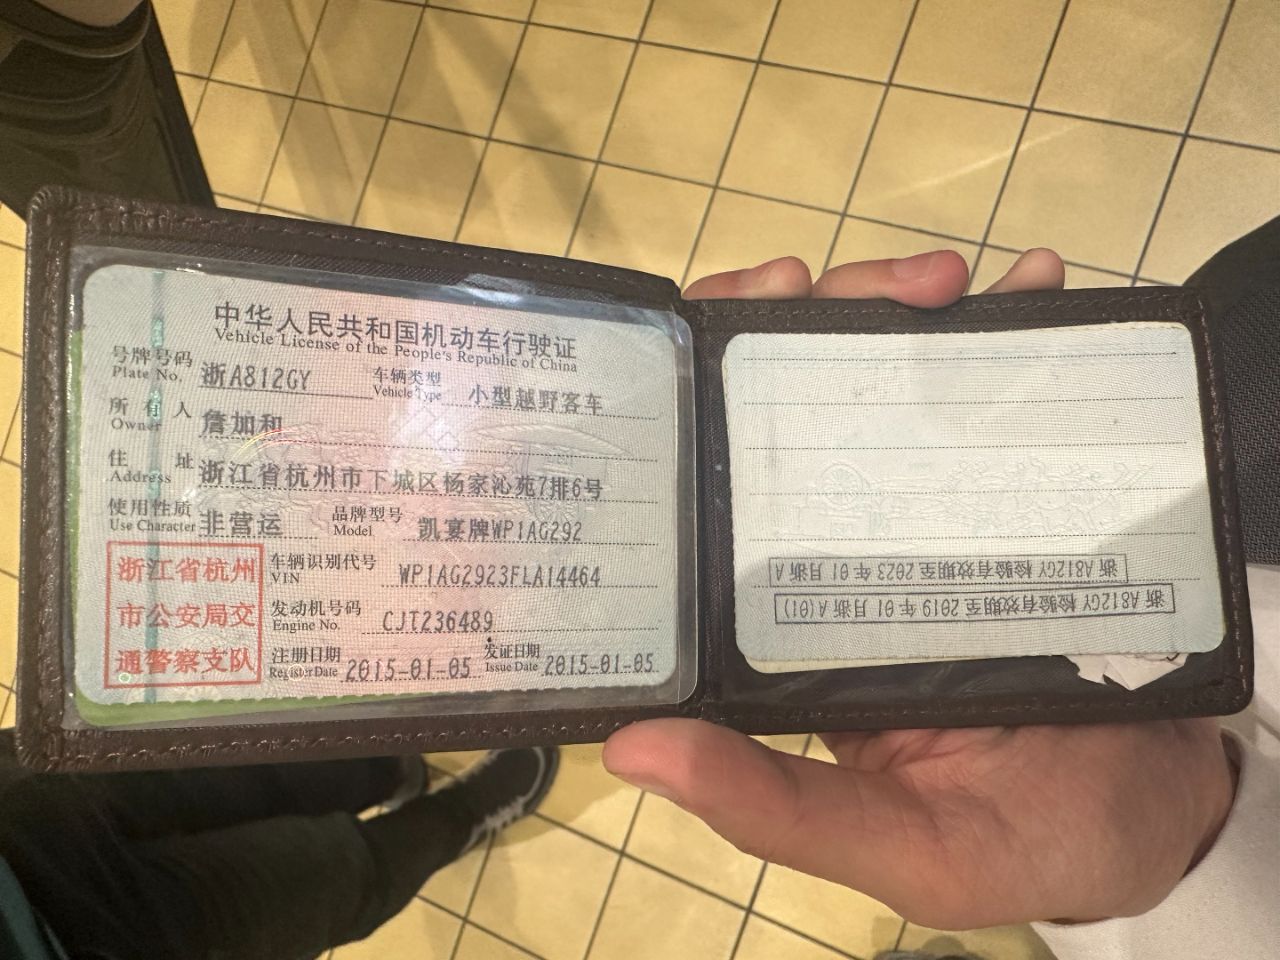 中华人民共和国机动车行驶证
Vehicle License of the People's Republic of China
号牌号码 Plate No. 浙A812GY 车辆类型 Vehicle Type 小型越野客车
所有人 Owner 詹加和
住址 Address 浙江省杭州市下城区杨家沁苑7排6号
使用性质 Use Character 非营运 品牌型号 Model 凯宴牌WP1AG292
浙江省杭州
市公安局交
通警察支队
车辆识别代号 VIN WP1AG2923FLA14464
发动机号码 Engine No. CJT236489
注册日期 Register Date 2015-01-05 发证日期 Issue Date 2015-01-05
浙A812GY 检验有效期至2019年01月浙A(01)
浙A812GY 检验有效期至2023年01月浙A